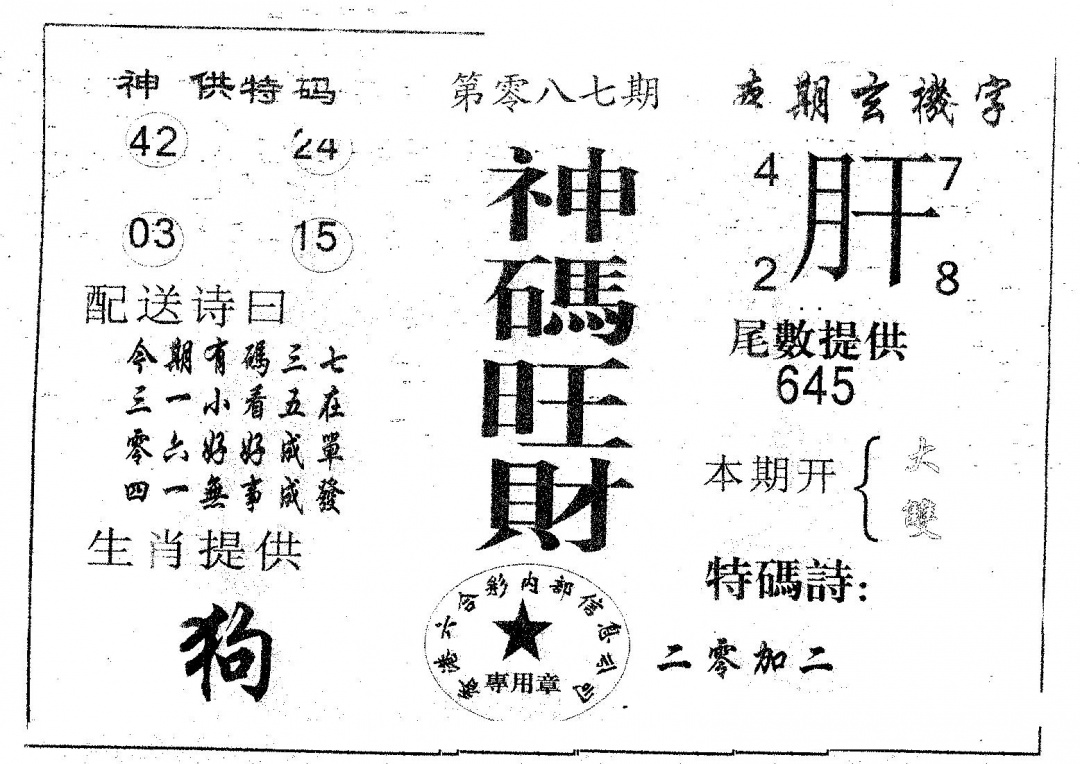 神供特码
42 24
03 15
配送诗曰
今期有碼三七
三一小看五在
零六好好成單
四一無事成發
生肖提供
狗
第零八七期
神碼旺財
香港六合彩内部信息公司
專用章
本期玄機字
4 7
肝
2 8
尾數提供
645
本期开
大
雙
特碼詩:
二零加二